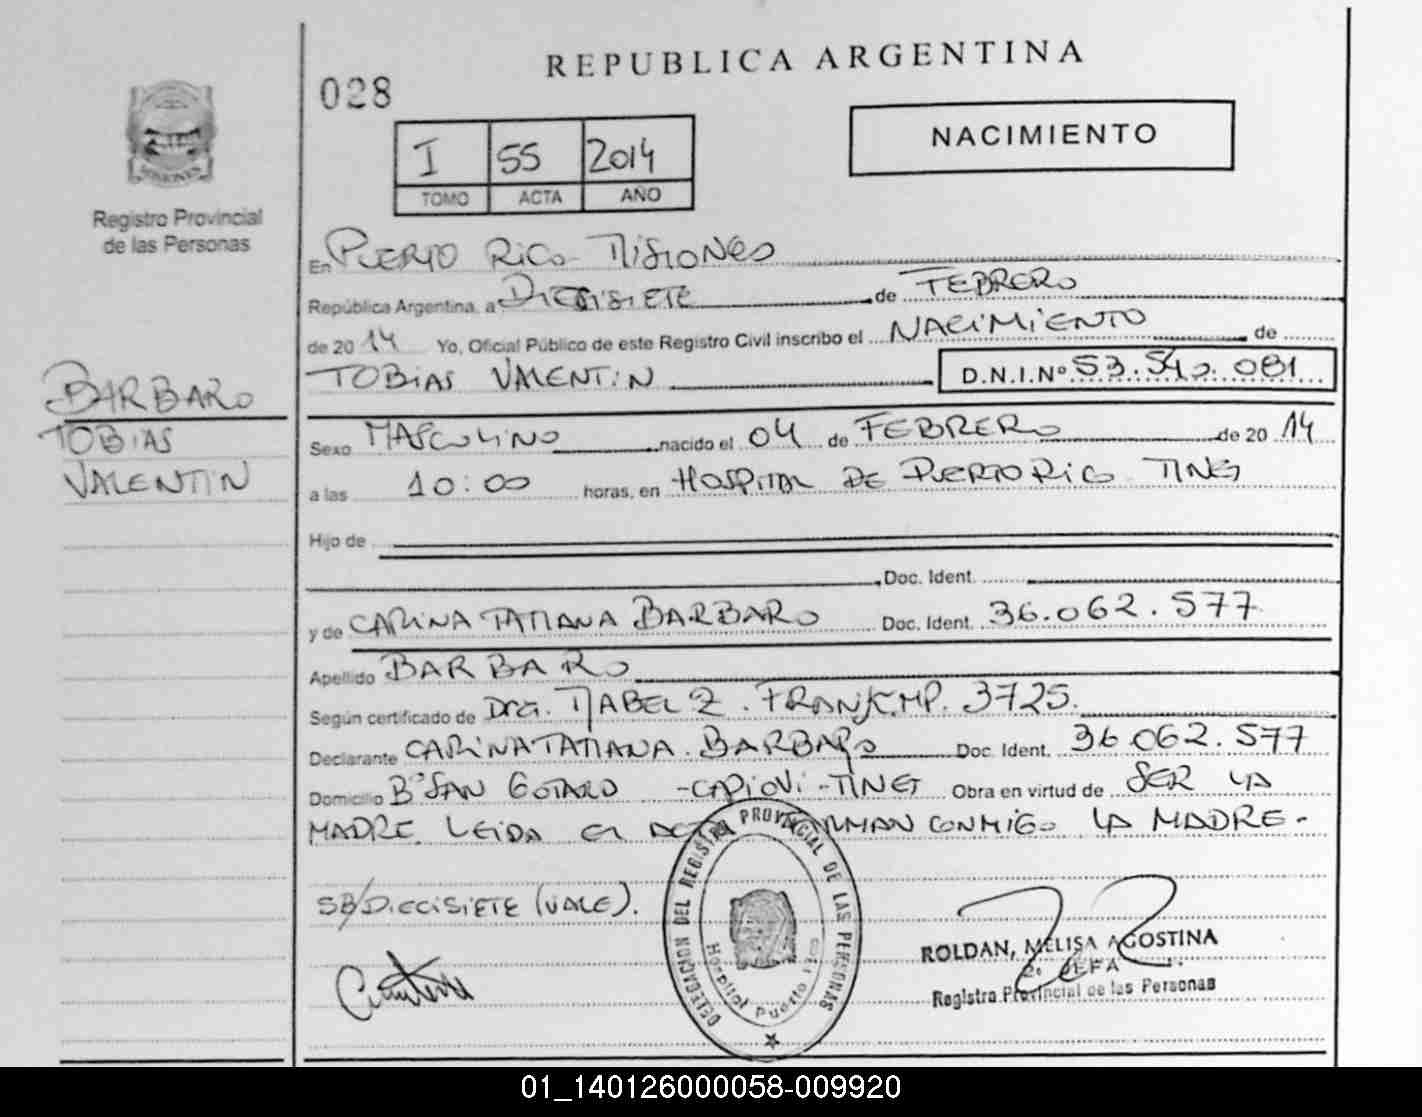 REPUBLICA ARGENTINA
028
NACIMIENTO
I 55 2014
TOMO ACTA AÑO
MISIONES
Registro Provincial
de las Personas
En PUERTO RICO - MISIONES
República Argentina, a DIECISIETE de FEBRERO
de 2014 Yo, Oficial Público de este Registro Civil inscribo el NACIMIENTO de
TOBIAS VALENTIN D.N.I.Nº 53.540.081
BARBARO
TOBIAS
VALENTIN
Sexo MASCULINO nacido el 04 de FEBRERO de 2014
a las 10:00 horas, en HOSPITAL DE PUERTO RICO
Hijo de
Doc. Ident.
y de CARINA TATIANA BARBARO Doc. Ident. 36.062.577
Apellido BARBARO
Según certificado de DRA. MABEL Z. FRANK MP. 3725.
Declarante CARINA TATIANA BARBARO Doc. Ident. 36.062.577
Domicilio Bº SAN GOTARDO - CAPIOVI - Obra en virtud de SER LA
MADRE LEIDA EL ACTA FIRMAN CONMIGO LA MADRE.-
SB/DIECISIETE (VALE).
DELEGACION DEL REGISTRO PROVINCIAL DE LAS PERSONAS
Hospital Puerto Rico
ROLDAN, MELISA AGOSTINA
JEFA
Registro Provincial de las Personas
01_140126000058-009920